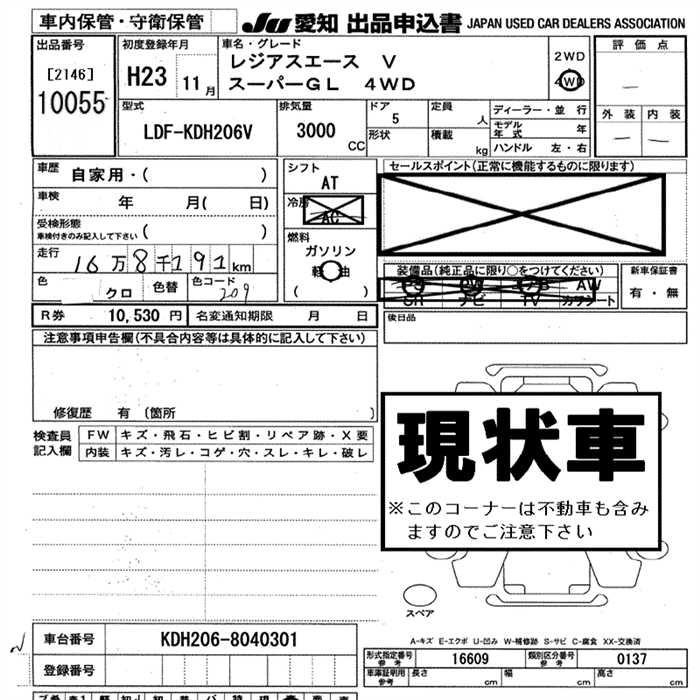 車内保管・守衛保管 JU 愛知 出品申込書 JAPAN USED CAR DEALERS ASSOCIATION
出品番号 初度登録年月 車名・グレード 評価点
[2146] H23 11月 レジアスエース V 2WD
10055 スーパーGL 4WD 4WD
外装 内装
型式 排気量 ドア 定員 ディーラー・並行
LDF-KDH206V 3000 CC 5 人 モデル年式
形状 積載 kg ハンドル 左・右
車歴 自家用・( ) シフト AT セールスポイント(正常に機能するものに限ります)
車検 年 月( 日) 冷房 AC
受検形態 ( )
車検付きのみ記入して下さい
燃料
走行 16万8千191km ガソリン
軽油
装備品(純正品に限り○をつけてください) 新車保証書
色 クロ 色替 色コード 209 ( ) PS PW AW 有・無
ナビ TV
R券 10,530円 名変通知期限 月 日 後日品
注意事項申告欄(不具合内容等は具体的に記入して下さい)
修復歴 有 (箇所 )
現状車
※このコーナーは不動車も含み
ますのでご注意下さい
検査員 FW キズ・飛石・ヒビ割・リペア跡・X要
記入欄 内装 キズ・汚レ・コゲ・穴・スレ・キレ・破レ
スペア
A-キズ E-エクボ U-凹み W-補修跡 S-サビ C-腐食 XX-交換済
車台番号 KDH206-8040301
形式指定番号 参考 16609 類別区分番号 参考 0137
登録番号
車庫証明用 参考 長さ cm 幅 cm 高さ cm